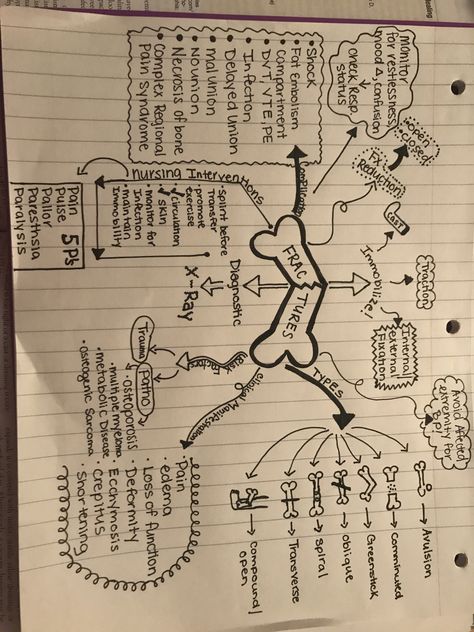 FRACTURES
Complications
• Shock
• Fat Embolism
• Compartment
• DVT, VTE, PE
• Infection
• Delayed Union
• mal Union
• Nounion
• Necrosis of bone
• Complex Regional
Pain Syndrome
monitor
for restlessness,
mood Δ, confusion
↓
check Resp.
status
Fx
Reduction
open
closed
Immobilize!
CAST
Traction
Internal
external
Fixation
Avoid Affected
extremity for
BP!
TYPES
→ Avulsion
→ Comminuted
→ Greenstick
→ oblique
→ spiral
→ Transverse
→ compound/
open
Clinical Manifestation
• Pain
• edema
• Loss of function
• Deformity
• Ecchymosis
• crepitus
• Shortening
Risk Factors
Trauma
Patho
• osteoporosis
• multiple myeloma
• metabolic Disease
• osteogenic Sarcoma
Diagnostic
X-Ray
Nursing Interventions
• Splint before
Transfer
• promote
exercise
✓ circulation
✓ skin
• monitor for
Infection
• maintain
Immobility
5 P's
Pain
Pulse
Pallor
Paresthsia
Paralysis